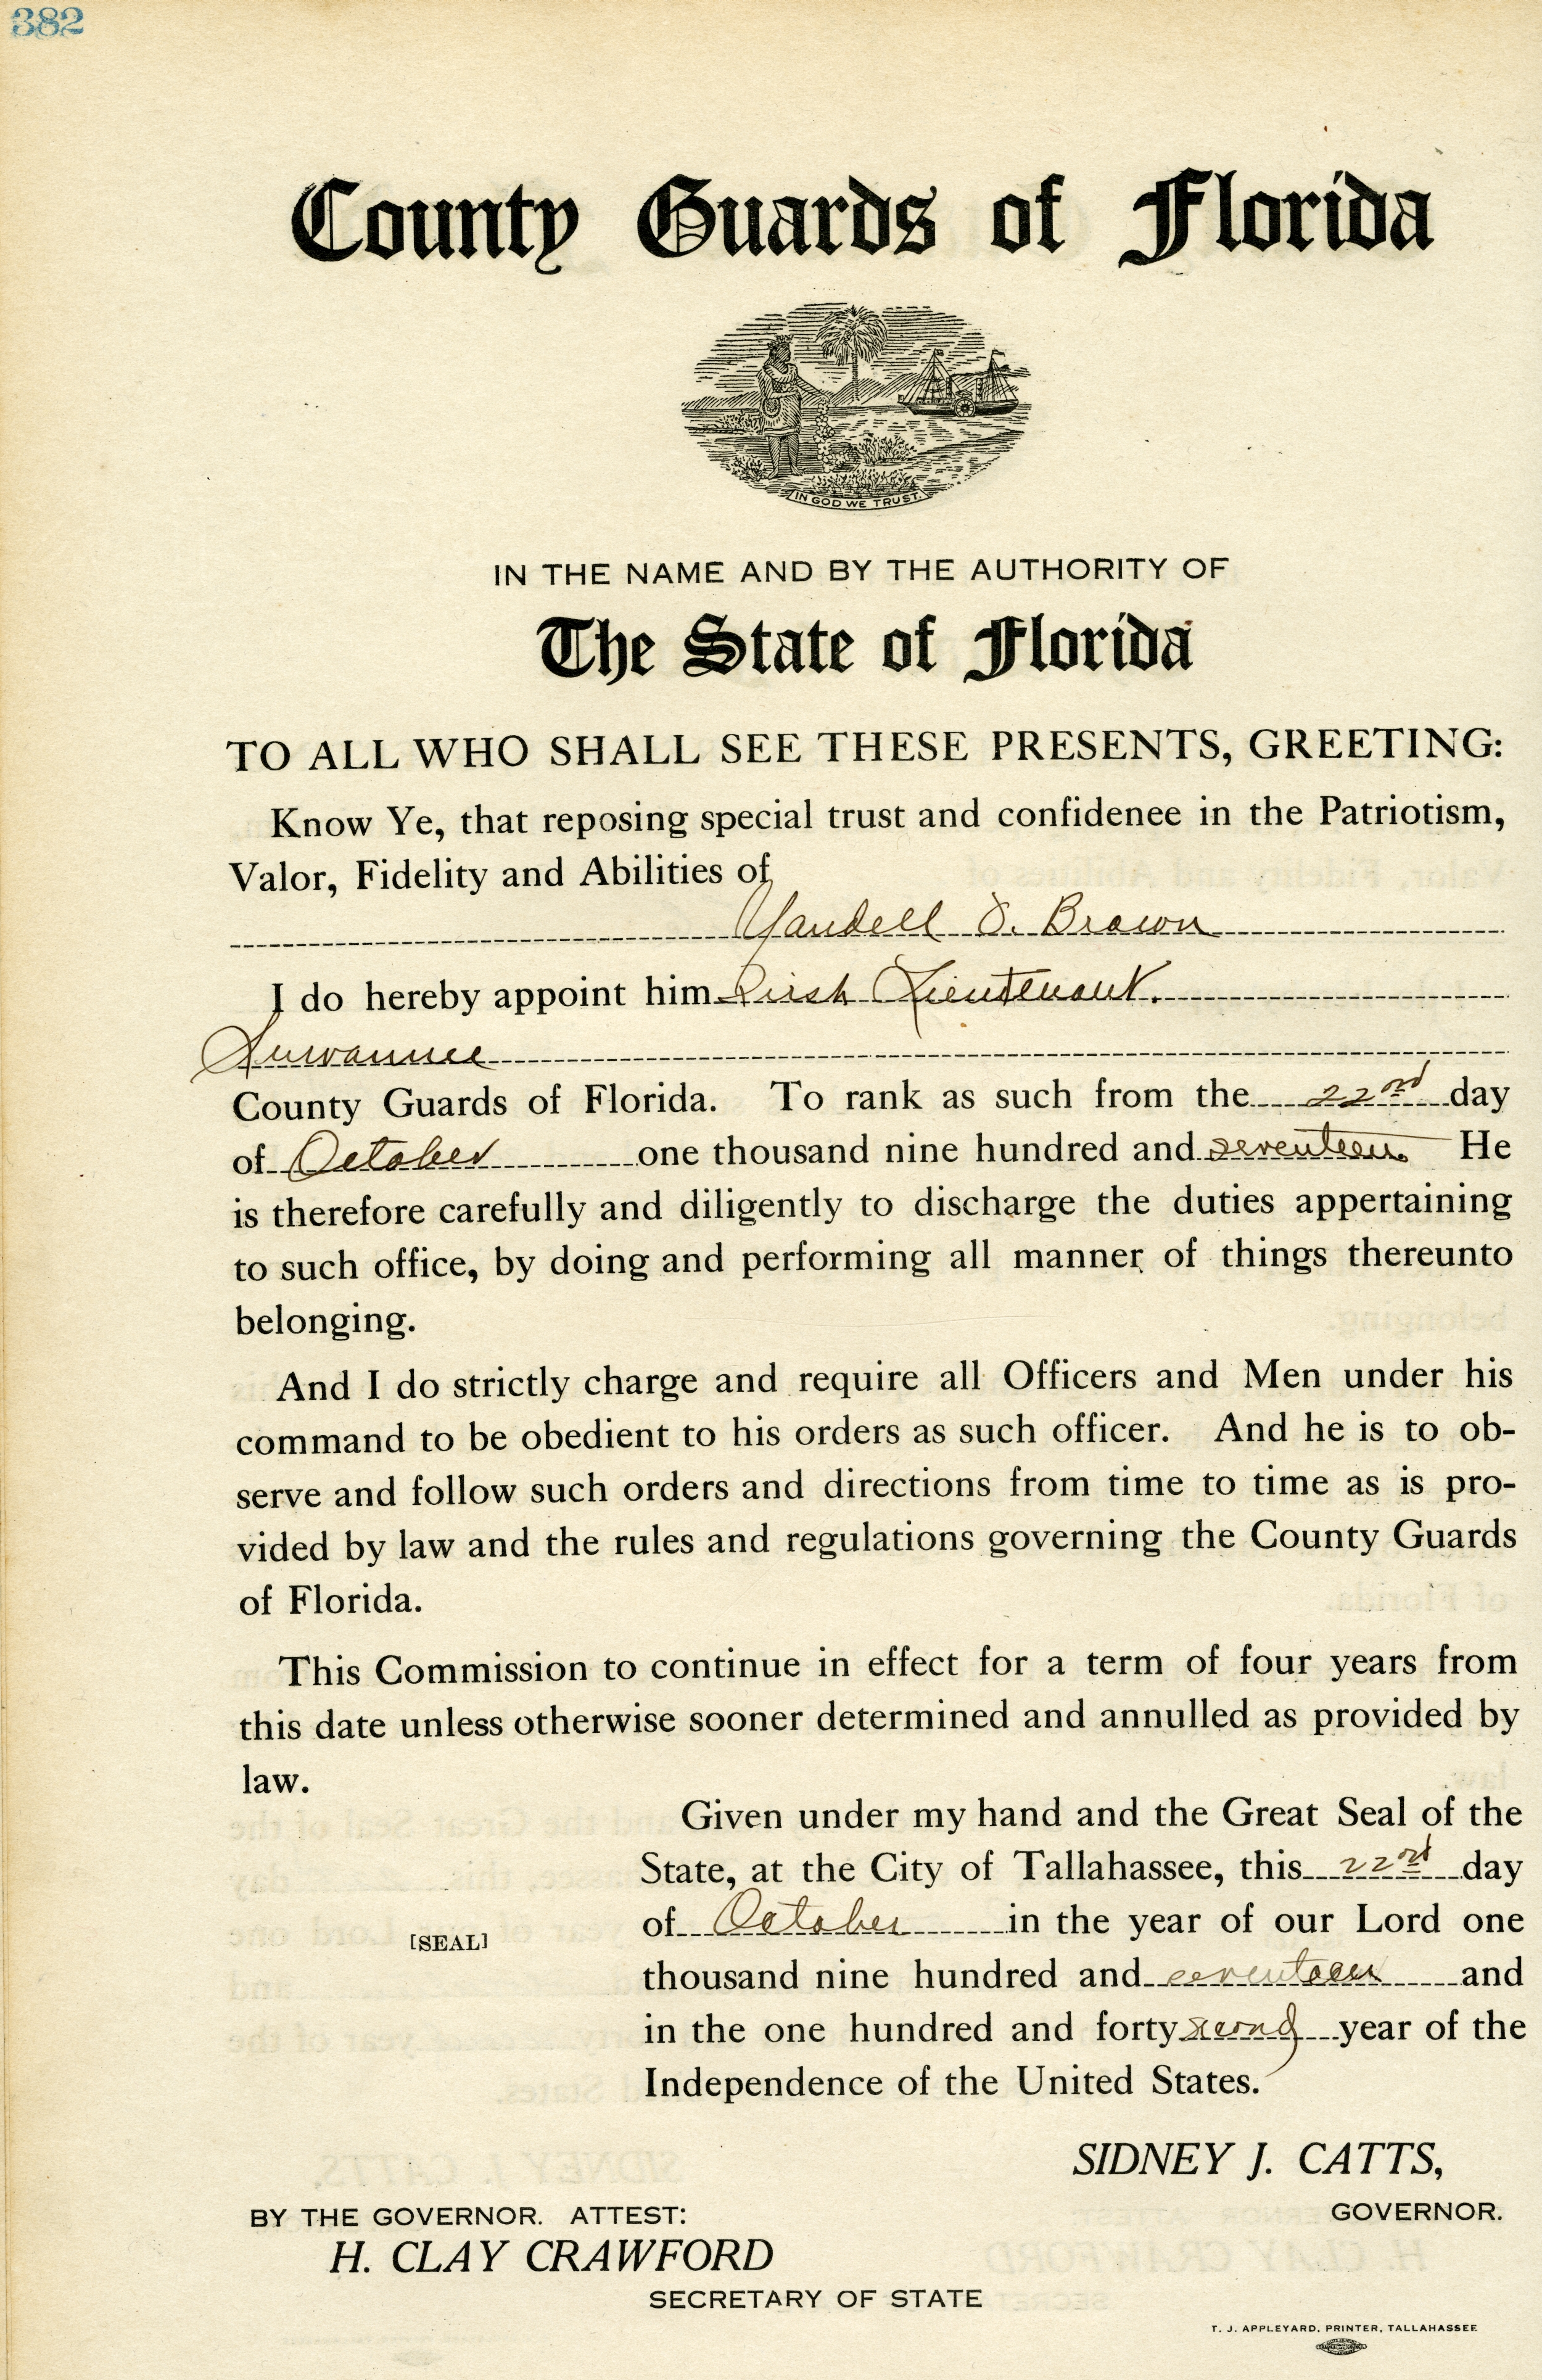 382
County Guards of Florida
IN GOD WE TRUST.
IN THE NAME AND BY THE AUTHORITY OF
The State of Florida
TO ALL WHO SHALL SEE THESE PRESENTS, GREETING:
Know Ye, that reposing special trust and confidenee in the Patriotism,
Valor, Fidelity and Abilities of
Yandell S. Brown
I do hereby appoint him First Lieutenant.
Suwannee
County Guards of Florida. To rank as such from the 22nd day
of October one thousand nine hundred and seventeen. He
is therefore carefully and diligently to discharge the duties appertaining
to such office, by doing and performing all manner of things thereunto
belonging.
And I do strictly charge and require all Officers and Men under his
command to be obedient to his orders as such officer. And he is to ob-
serve and follow such orders and directions from time to time as is pro-
vided by law and the rules and regulations governing the County Guards
of Florida.
This Commission to continue in effect for a term of four years from
this date unless otherwise sooner determined and annulled as provided by
law.
Given under my hand and the Great Seal of the
State, at the City of Tallahassee, this 22nd day
of October in the year of our Lord one
[SEAL]
thousand nine hundred and seventeen and
in the one hundred and forty second year of the
Independence of the United States.
SIDNEY J. CATTS,
GOVERNOR.
BY THE GOVERNOR. ATTEST:
H. CLAY CRAWFORD
SECRETARY OF STATE
T. J. APPLEYARD, PRINTER, TALLAHASSEE